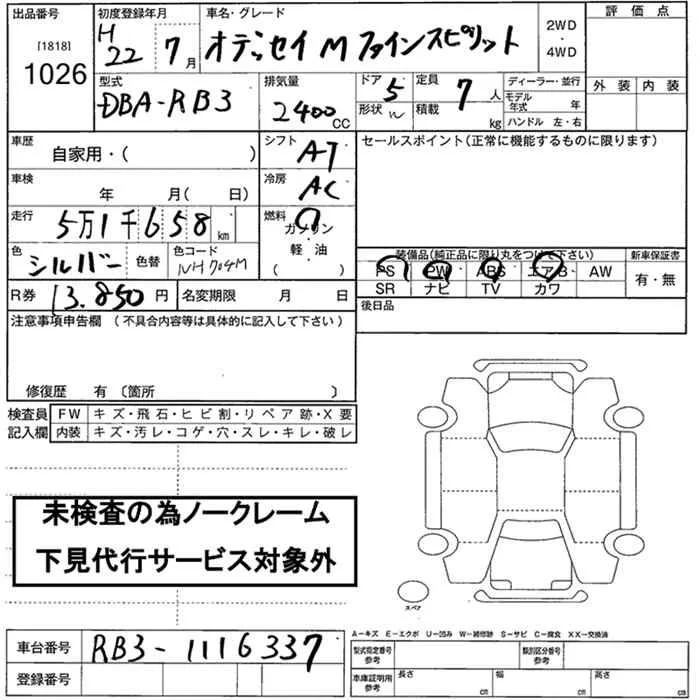 出品番号 初度登録年月 車名・グレード 評価点
[1818] H22 7月 オデッセイ M ファインスピリット 2WD・4WD
1026 型式 排気量 ドア 5 定員 7人 ディーラー・並行 外装 内装
DBA-RB3 2400 CC 形状 W 積載 kg モデル年式 年
ハンドル 左・右
車歴 シフト セールスポイント(正常に機能するものに限ります)
自家用・( ) AT
車検 冷房
年 月( 日) AC
走行 5万1千658km 燃料
ガソリン
色 シルバー 色替 色コード NH704M 軽・油 装備品(純正品に限り丸をつけて下さい) 新車保証書
( ) PS PW ABS エアB AW 有・無
R券 13.850円 名変期限 月 日 SR ナビ TV カワ
注意事項申告欄 (不具合内容等は具体的に記入して下さい) 後日品
修復歴 有 〔箇所 〕
検査員 FW キズ・飛石・ヒビ割・リペア跡・X要
記入欄 内装 キズ・汚レ・コゲ・穴・スレ・キレ・破レ
未検査の為ノークレーム
下見代行サービス対象外
スペア
A-キズ E-エクボ U-凹み W-補修跡 S-サビ C-腐食 XX-交換済
車台番号 RB3-1116337 型式指定番号 参考 類別区分番号 参考
登録番号 車庫証明用 参考 長さ cm 幅 cm 高さ cm